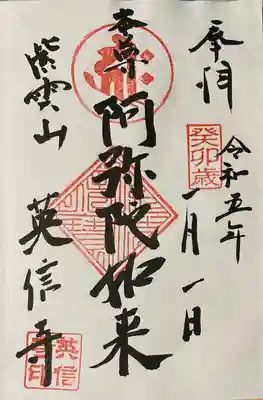 奉拝
癸卯歳
令和五年
一月一日
本尊
阿弥陀如来
紫雲山
英信寺
英信寺印